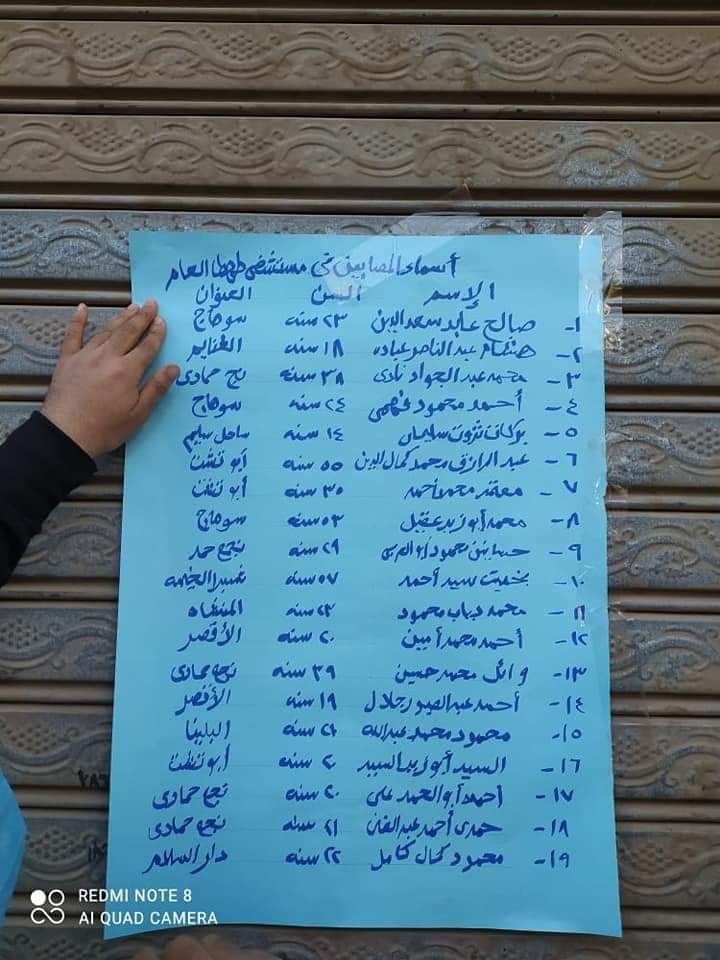 أسماء المصابين في مستشفى طهطا العام
الإسم السن العنوان
١- صالح عابد سعد الدين ٢٣ سنه سوهاج
٢- هشام عبد الناصر عباده ١٨ سنه الغنايم
٣- محمد عبد الجواد نادى ٣٨ سنه نجع حمادى
٤- أحمد محمود فهمى ٢٤ سنه سوهاج
٥- بركات ثروت سليمان ١٤ سنه ساحل سليم
٦- عبد الرازق محمد كمال الدين ٥٥ سنه أبو تشت
٧- معتز محمد أحمد ٣٠ سنه أبو تشت
٨- محمد أبو زيد عقيل ٥٣ سنه سوهاج
٩- محمود ٢٩ سنه نجع حمد
١٠- بخيت سيد أحمد ٥٧ سنه
١١- محمد دياب محمود ٢٣ سنه المنشاه
١٢- أحمد محمد أمين ٢٠ سنه الأقصر
١٣- وائل محمد حسين ٣٩ سنه نجع حمادى
١٤- أحمد عبد الصبور جلال ١٩ سنه الأقصر
١٥- محمود محمد عبدالله ٢١ سنه البلينا
١٦- السيد أبو زيد السيد ٢٠ سنه أبو تشت
١٧- أحمد أبو الحمد على ٢٠ سنه نجع حمادى
١٨- حمدى أحمد عبد الغنى ٢١ سنه نجع حمادى
١٩- محمود كمال كامل ٢٢ سنه دار السلام
REDMI NOTE 8
AI QUAD CAMERA